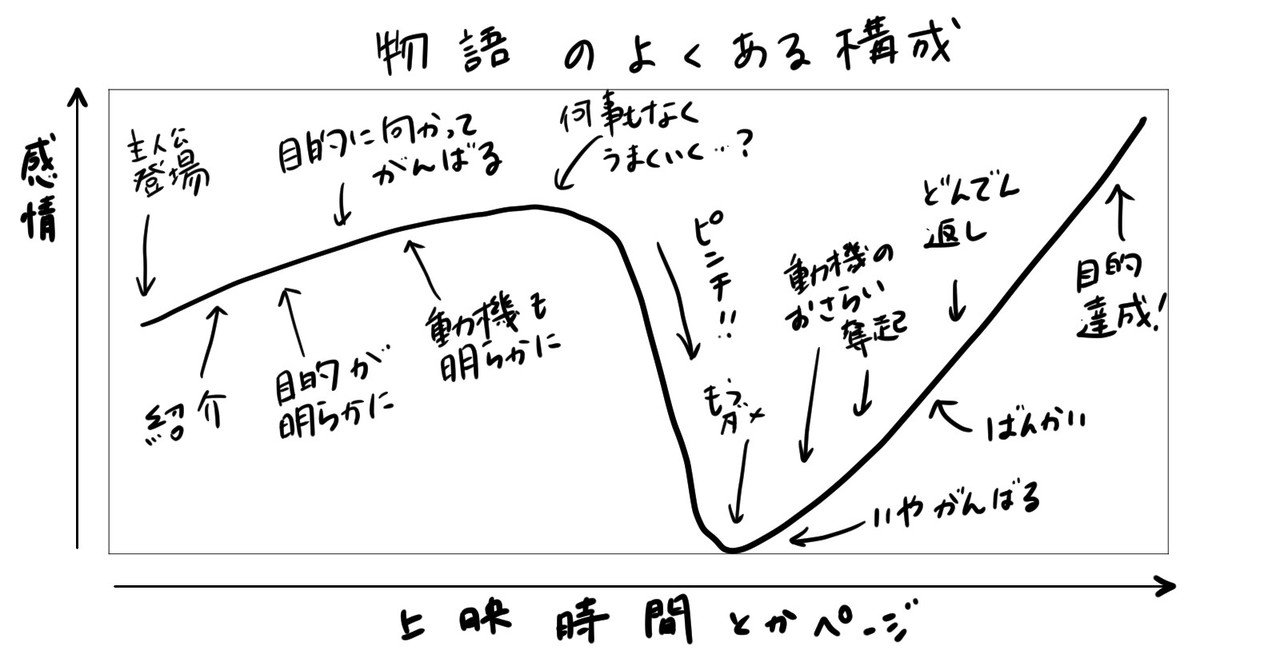 物語のよくある構成
感情
主人公
登場
目的に向かって
がんばる
何事もなく
うまくいく…?
ピンチ!!
動機の
おさらい
奪起
どんでん
返し
目的
達成!
紹介
目的が
明らかに
動機も
明らかに
もう
ダメ
いやがんばる
ばんかい
上映時間とかページ